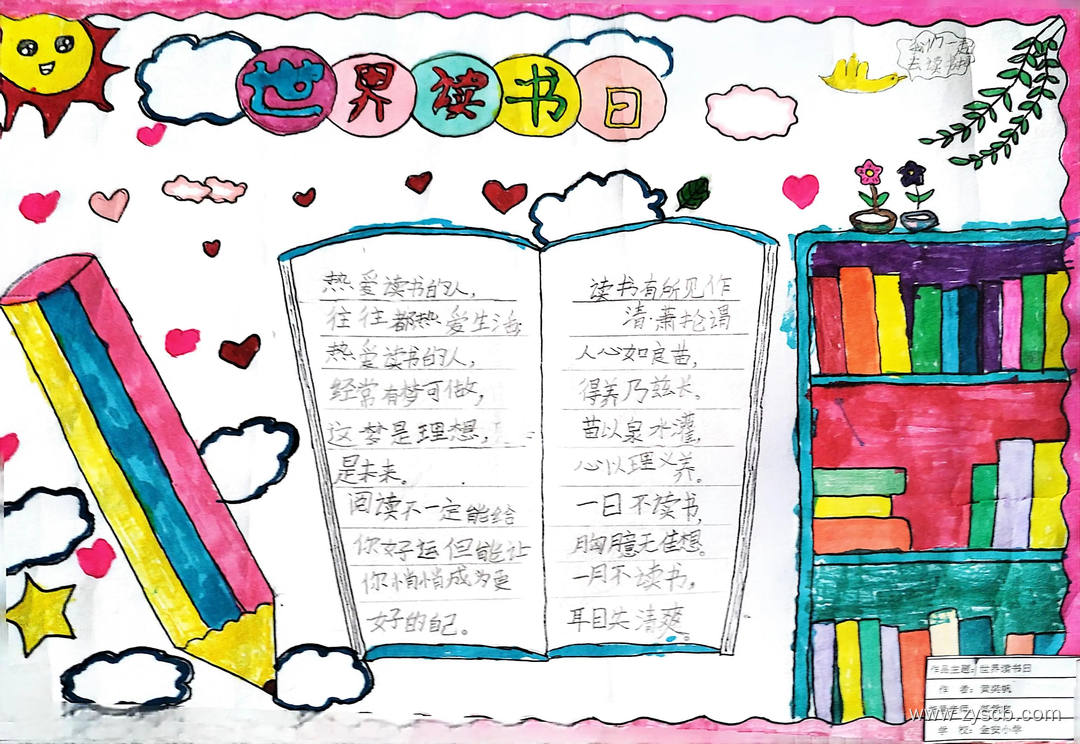 世界读书日
我们一起
去读书
热爱读书的人，
往往都热爱生活
热爱读书的人，
经常有梦可做，
这梦是理想，
是未来。
阅读不一定能给
你好运但能让
你悄悄成为更
好的自己。
读书有所见作
清·萧抡谓
人心如良苗，
得养乃兹长。
苗以泉水灌，
心以理义养。
一日不读书，
胸臆无佳想。
一月不读书，
耳目失清爽。
作品主题：世界读书日
作 者：黄奕帆
学 校：金安小学
www.zyscb.com